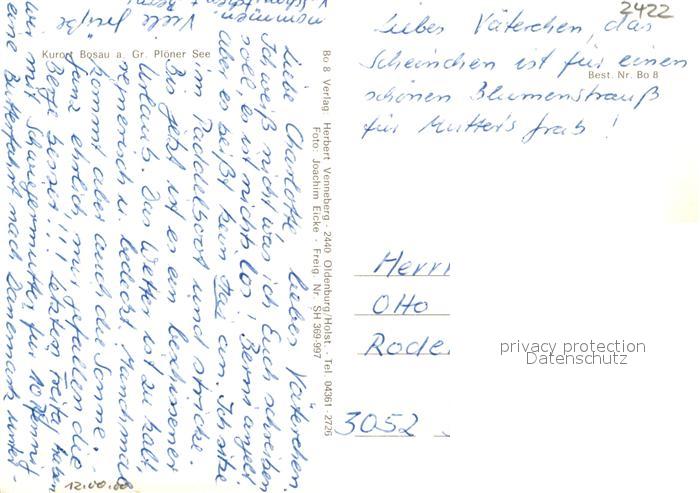 2422
Liebes Väterchen, das
Scheinchen ist für einen
schönen Blumenstrauß
für Mutter's Grab!
Best. Nr. Bo 8
Kurort Bosau a. Gr. Plöner See
Bo 8 Verlag: Herbert Venneberg · 2440 Oldenburg/Holst. · Tel. 04361 - 2726
Foto: Joachim Eicke · Freig. Nr. SH 369-997
Liebe Charlotte, liebes Väterchen.
Ich weiß nicht was ich Euch schreiben
soll, es ist nichts los, Bernd angelt
aber es beißt kein Hai an. Ich sitze
im Paddelboot und stricke.
Bis jetzt ist es ein beschissener
Urlaub. Das Wetter ist zu kalt,
regnerisch u. bedeckt. Manchmal
kommt aber auch die Sonne. -
Ganz ehrlich, mir gefallen die
Berge besser!!! Letzten Freitag haben
wir mit Schwiegermutter für 10 Pfennig
eine Butterfahrt nach Dänemark unter-
nommen. Viele Grüße
Herrn
Otto
Rode
3052
privacy protection
Datenschutz
12.00.00